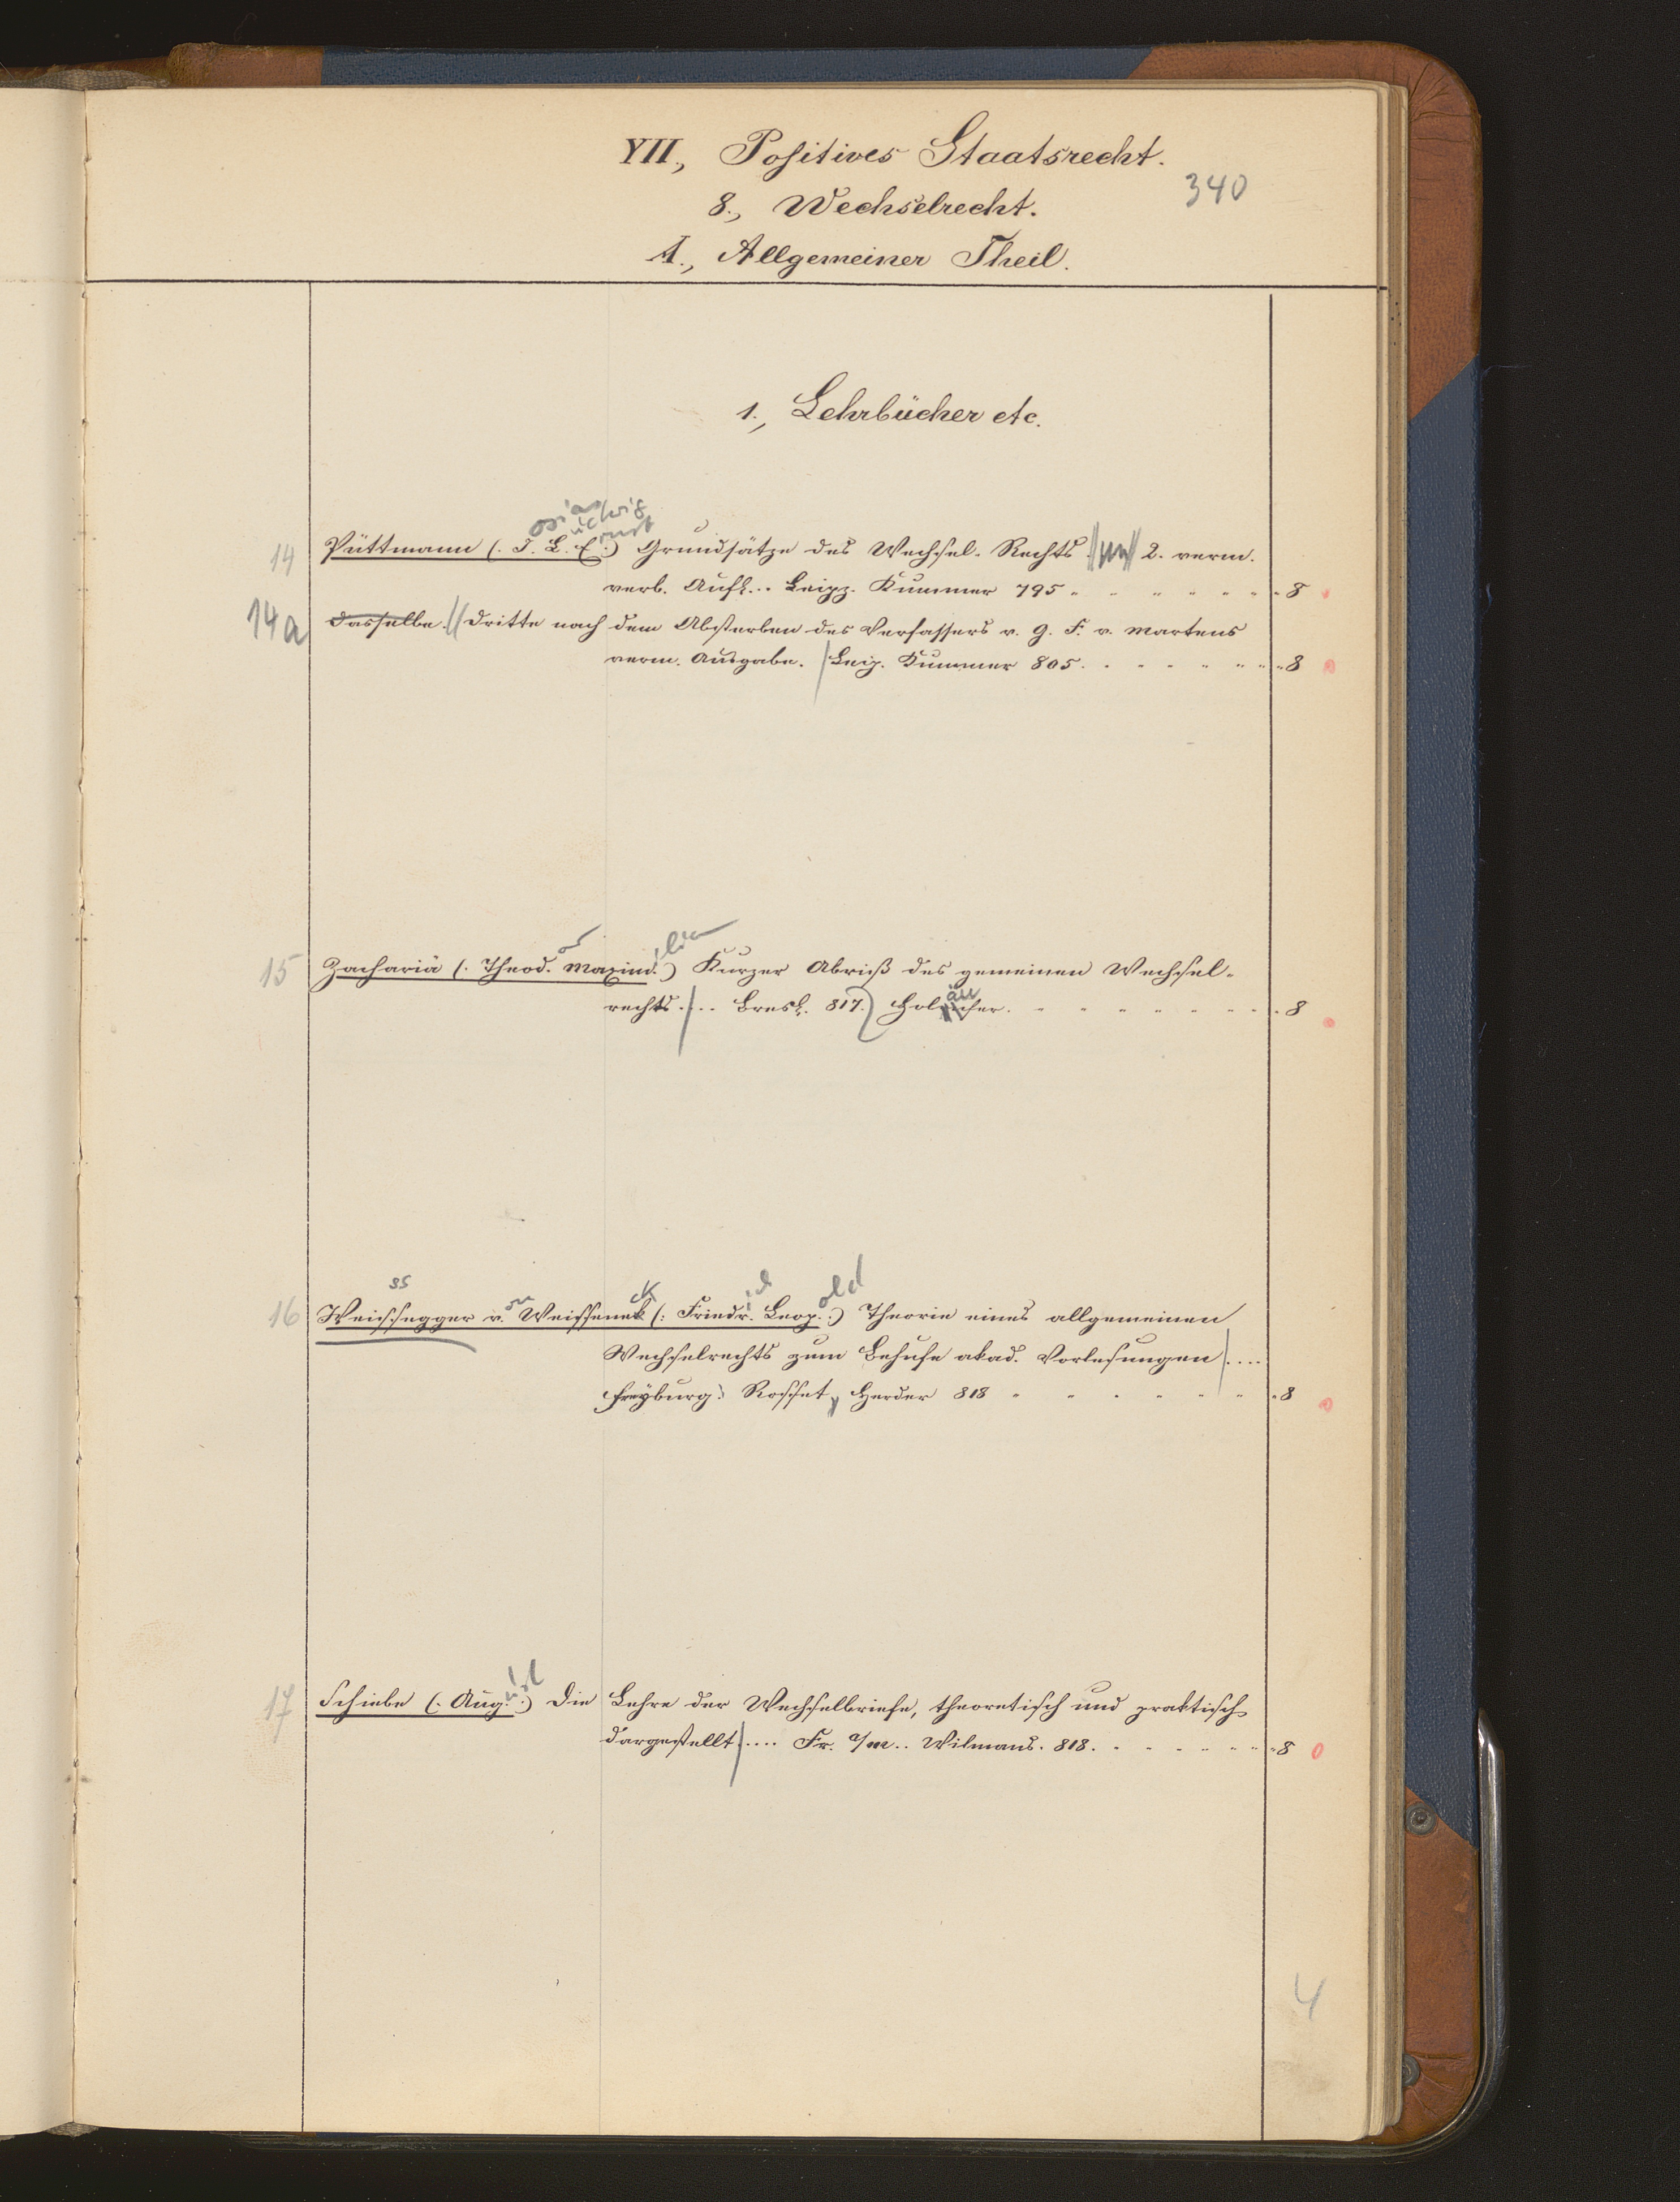 YII., Positives Staatsrecht.
340
8., Wechselrecht.
A., Allgemeiner Theil.
1., Lehrbücher etc.
osias udwig rnst
14 Püttmann (. J. L. E.:) Grundsätze des Wechsel-Rechts. 2. verm.
verb. Aufl... Leipz. Kummer 795 " " " " " " - 8
14a Dasselbe. // Dritte nach dem Absterben des Verfassers v. G. F. v. Martens
verm. Ausgabe. / Leip. Kummer 805. . - - " " " " - 8
or ilian
15 Zachariä (. Theod. Maxim.:) Kurzer Abriß des gemeinen Wechsel-
äu
rechts. / ... Bresl. 817. Holäufer. - - - - - - - 8
ss on ck ich old
16 Weissegger v. Weissenek (: Friedr. Leop.:) Theorie eines allgemeinen
Wechselrechts zum Behufe akad. Vorlesungen / ....
Freyburg: Rosset, Herder 818 " " " " " " - 8
ust
17 Schiebe (. Aug.:) Die Lehre der Wechselbriefe, theoretisch und praktisch
dargestellt / .... Fr. a/m.. Wilmans. 818. - - - - - " - 8
4